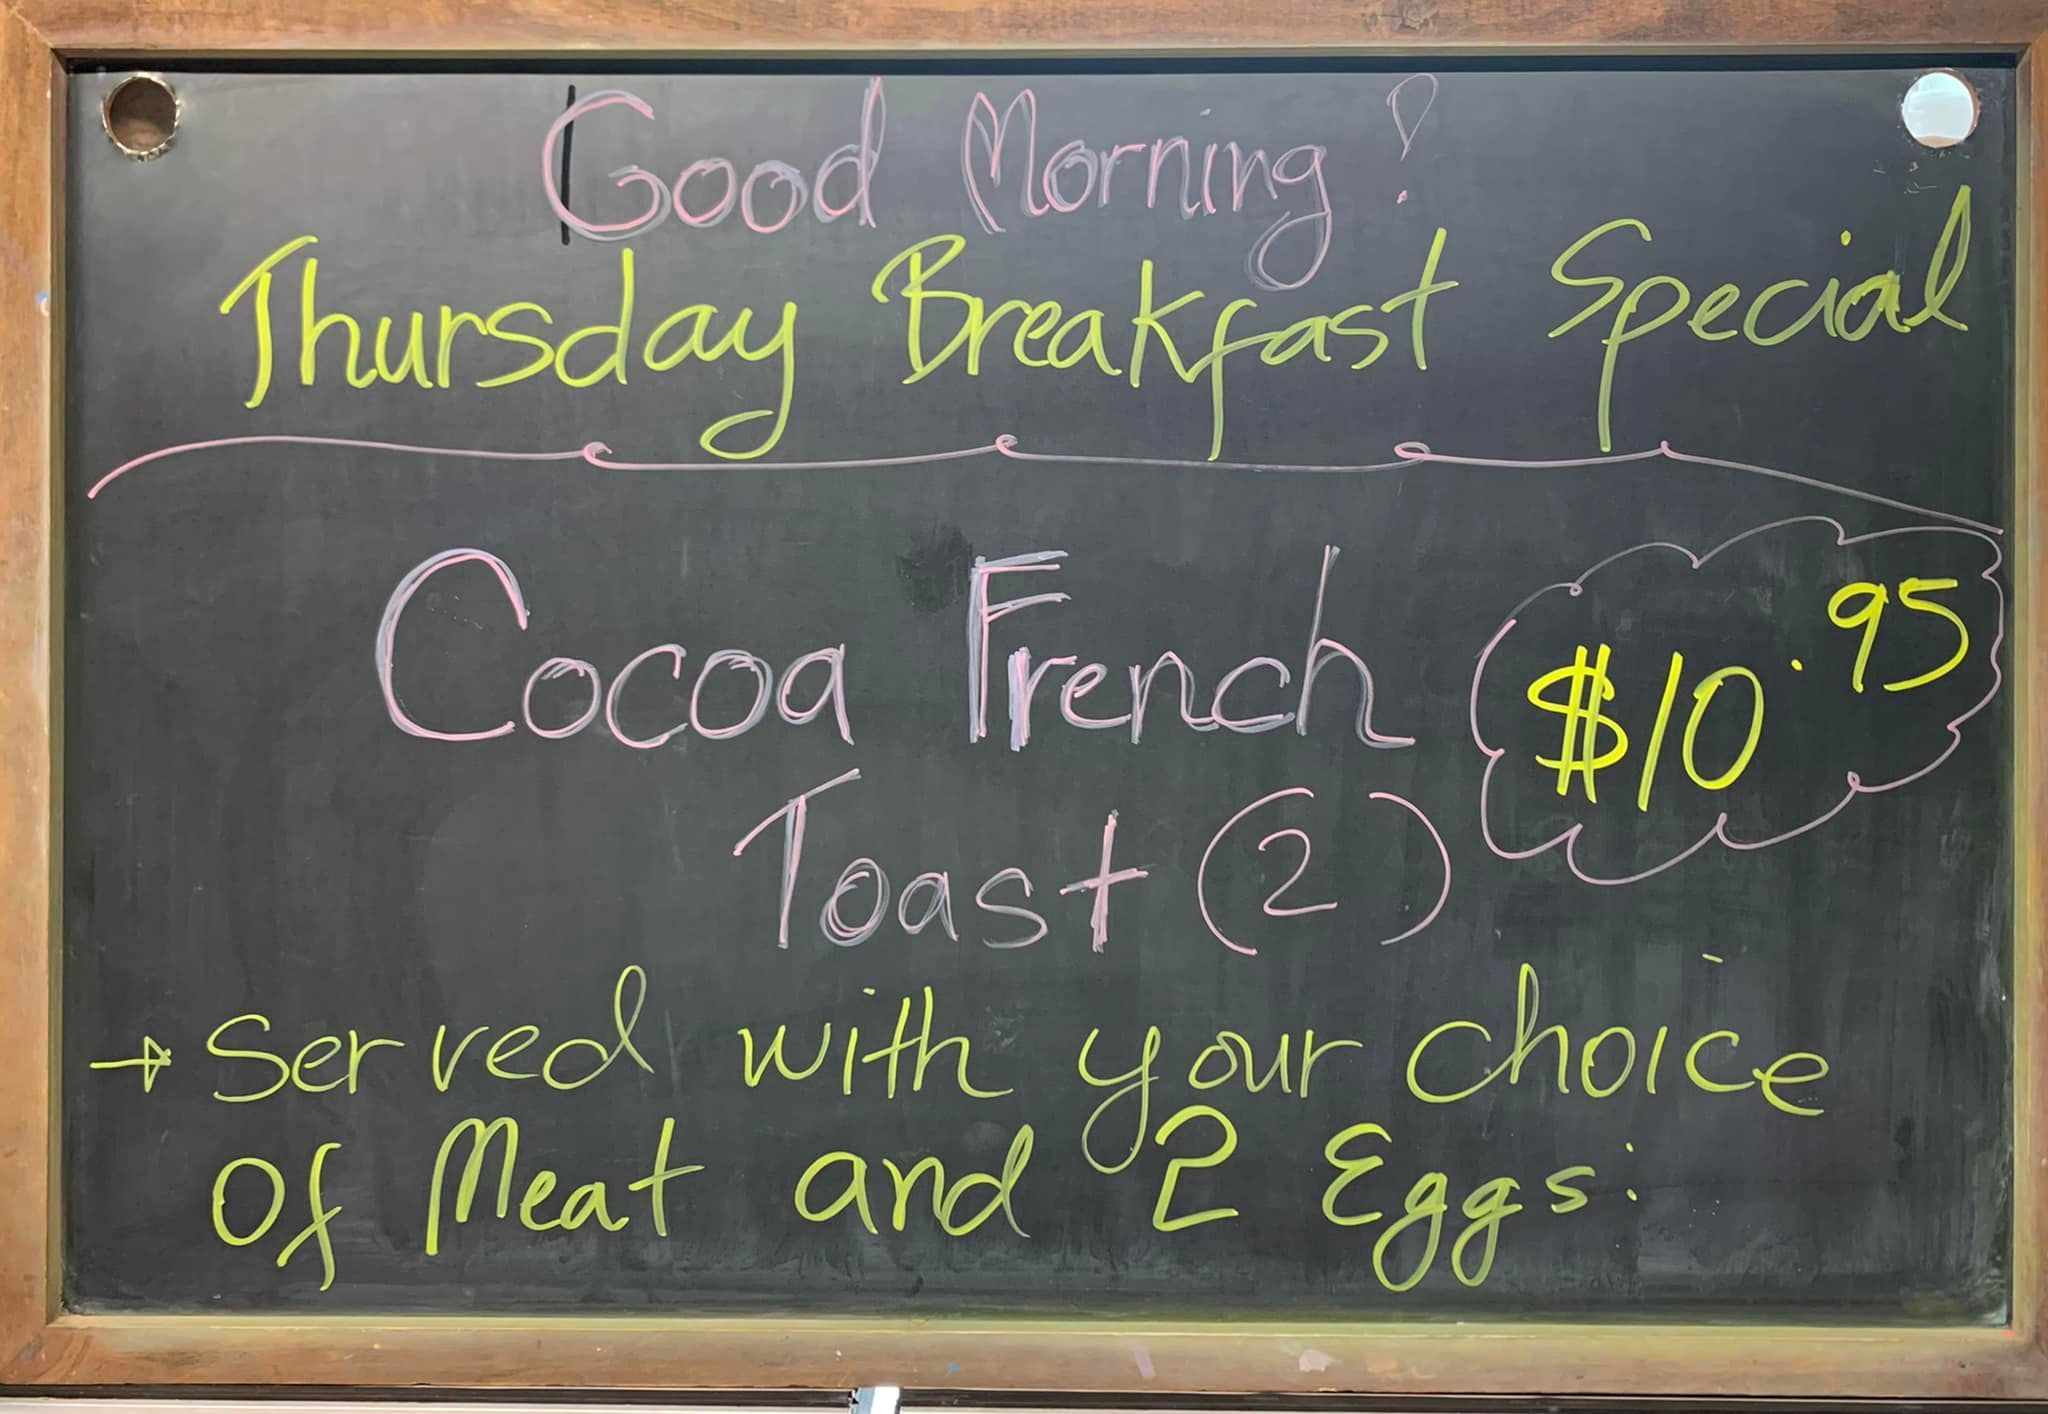 Good Morning!
Thursday Breakfast Special
Cocoa French
$10.95
Toast (2)
→ Served with your choice
of Meat and 2 Eggs: